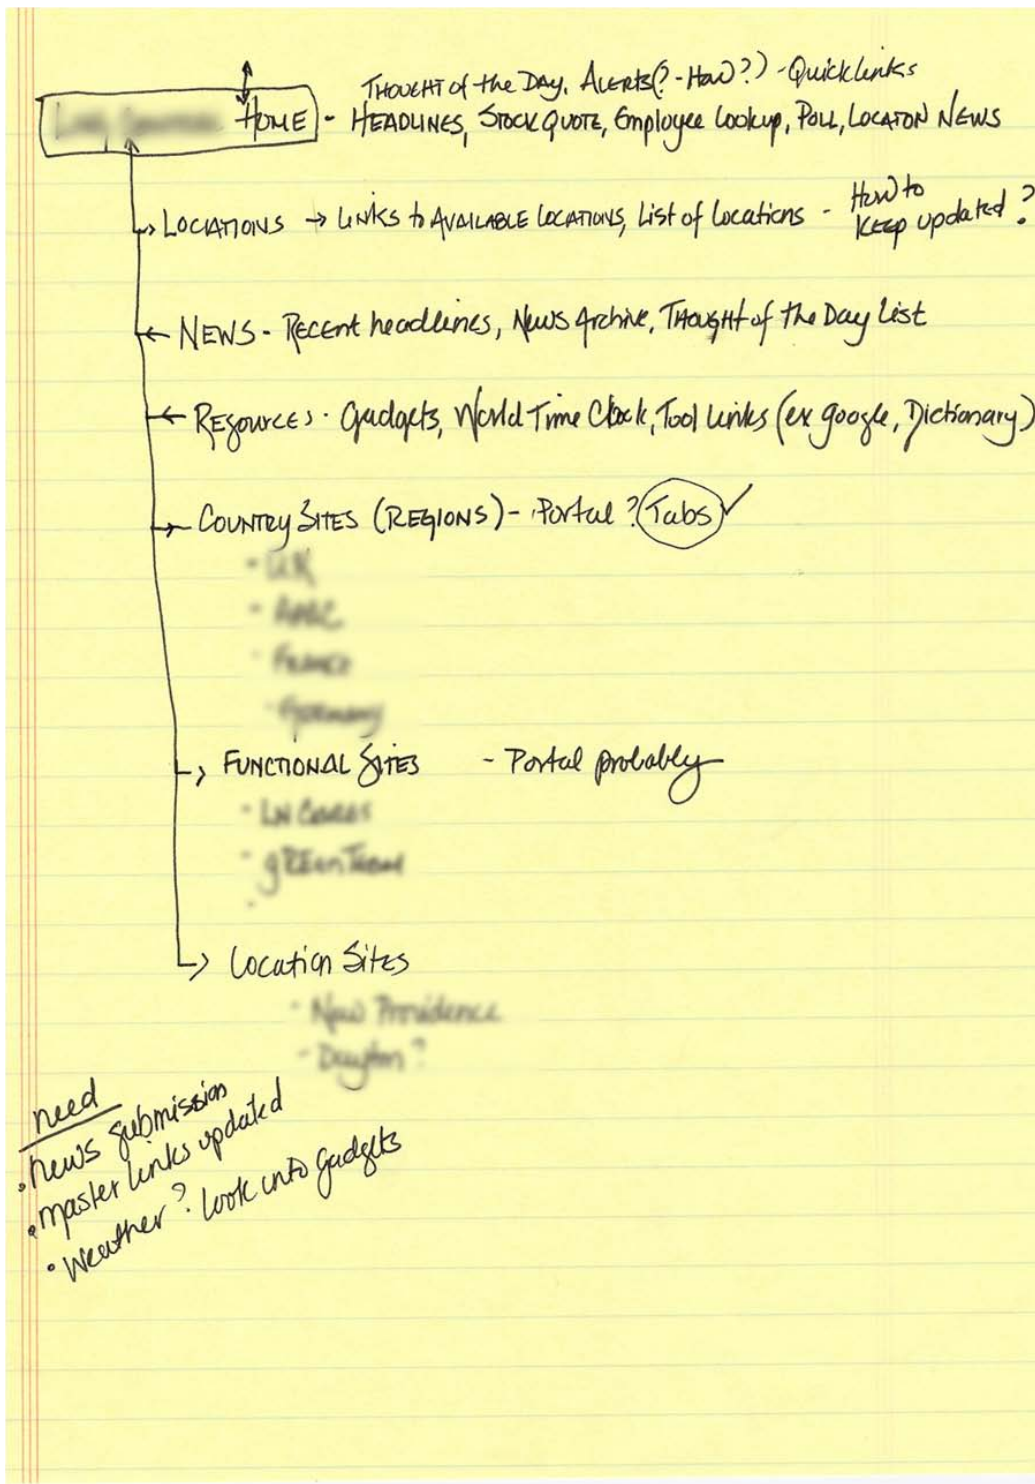 THOUGHT of the Day, ALERTS(? - How?) - Quicklinks
HOME - HEADLINES, STOCK QUOTE, Employee Lookup, POLL, LOCATON NEWS
LOCATIONS → LINKS to AVAILABLE LOCATIONS, List of locations - How to
KEEP updated ?
← NEWS - RECENT headlines, News Archive, THOUGHT of the Day List
← RESOURCES - Gadgets, World Time Clock, Tool Links (ex google, Dictionary)
→ COUNTRY SITES (REGIONS) - Portal ? Tabs ✓
→ FUNCTIONAL SITES - Portal probably
→ Location Sites
need
• news submission
• master links updated
• weather? look into gadgets